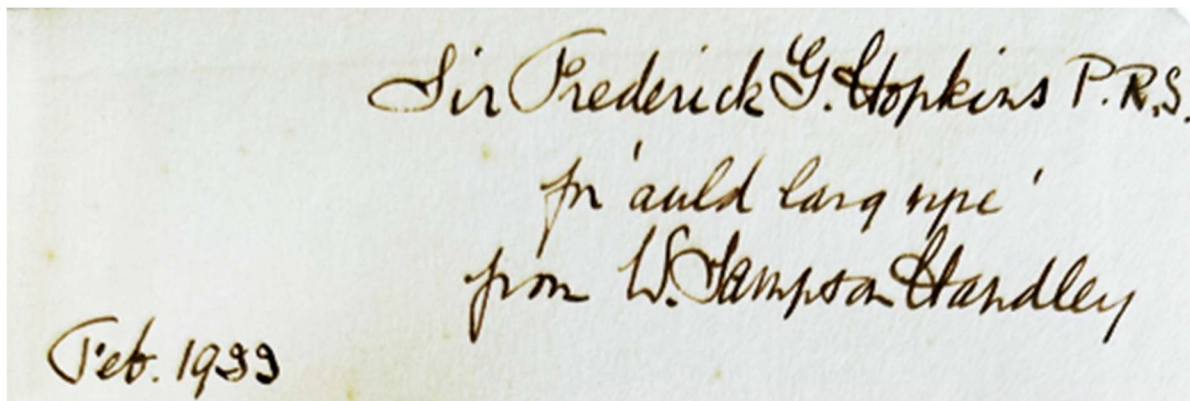 Sir Frederick G. Hopkins P.R.S.
for 'auld lang syne'
from W. Sampson Handley
Feb. 1933